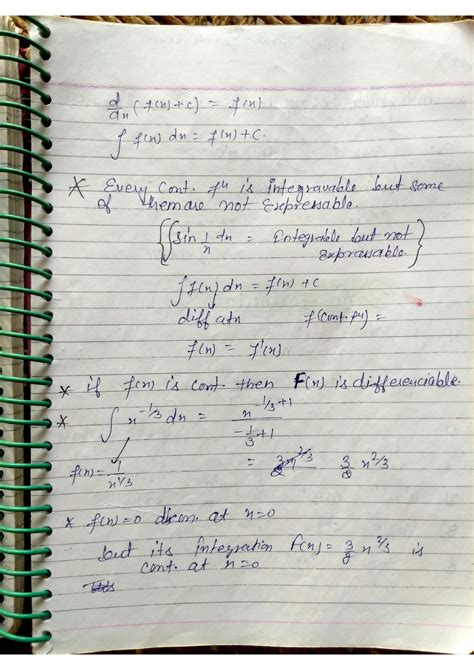 d/dx (f(x)+c) = f(x)
∫ f(x) dx = f(x) + C.
* Every Cont. fⁿ is integravable but some
of them are not Expressable.
{∫ sin 1/x dx = Integrable but not
Expressable}
∫ f(x) dx = f(x) + C
diff at x f(cont. fⁿ) =
f(x) = f'(x)
* if f(x) is cont. then F(x) is differenciable.
* ∫ x^-1/3 dx = x^-1/3+1 / -1/3+1
f(x) = 1/x^1/3 = 3/2 x^2/3
* f(x)=0 discon. at x=0
but its integration F(x) = 3/2 x^2/3 is
cont. at x=0